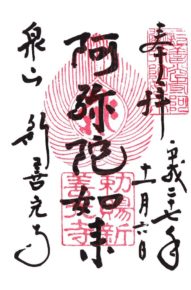 奉拝
平成二十七年
十一月六日
阿弥陀如来
勅賜新
善光寺
泉山
新善光寺